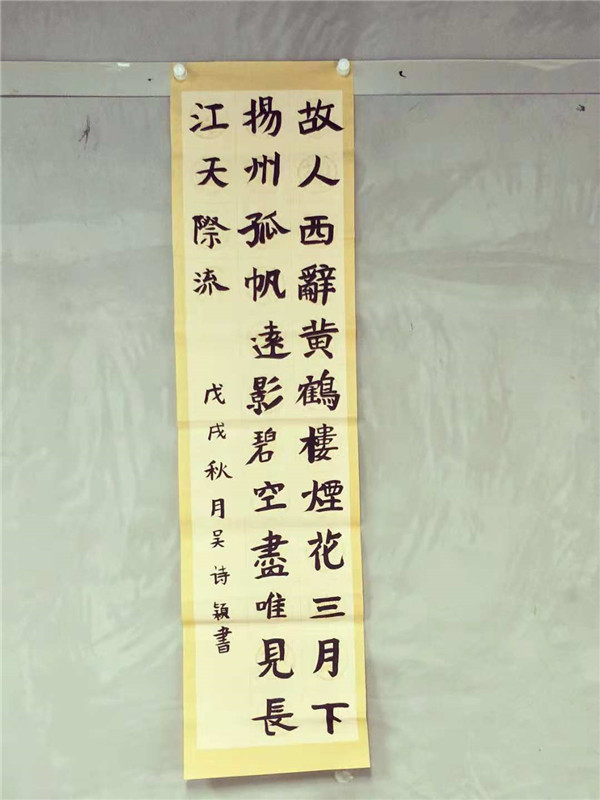 故人西辭黄鶴樓煙花三月下
揚州孤帆遠影碧空盡唯見長
江天際流
戊戌秋月吴诗穎書